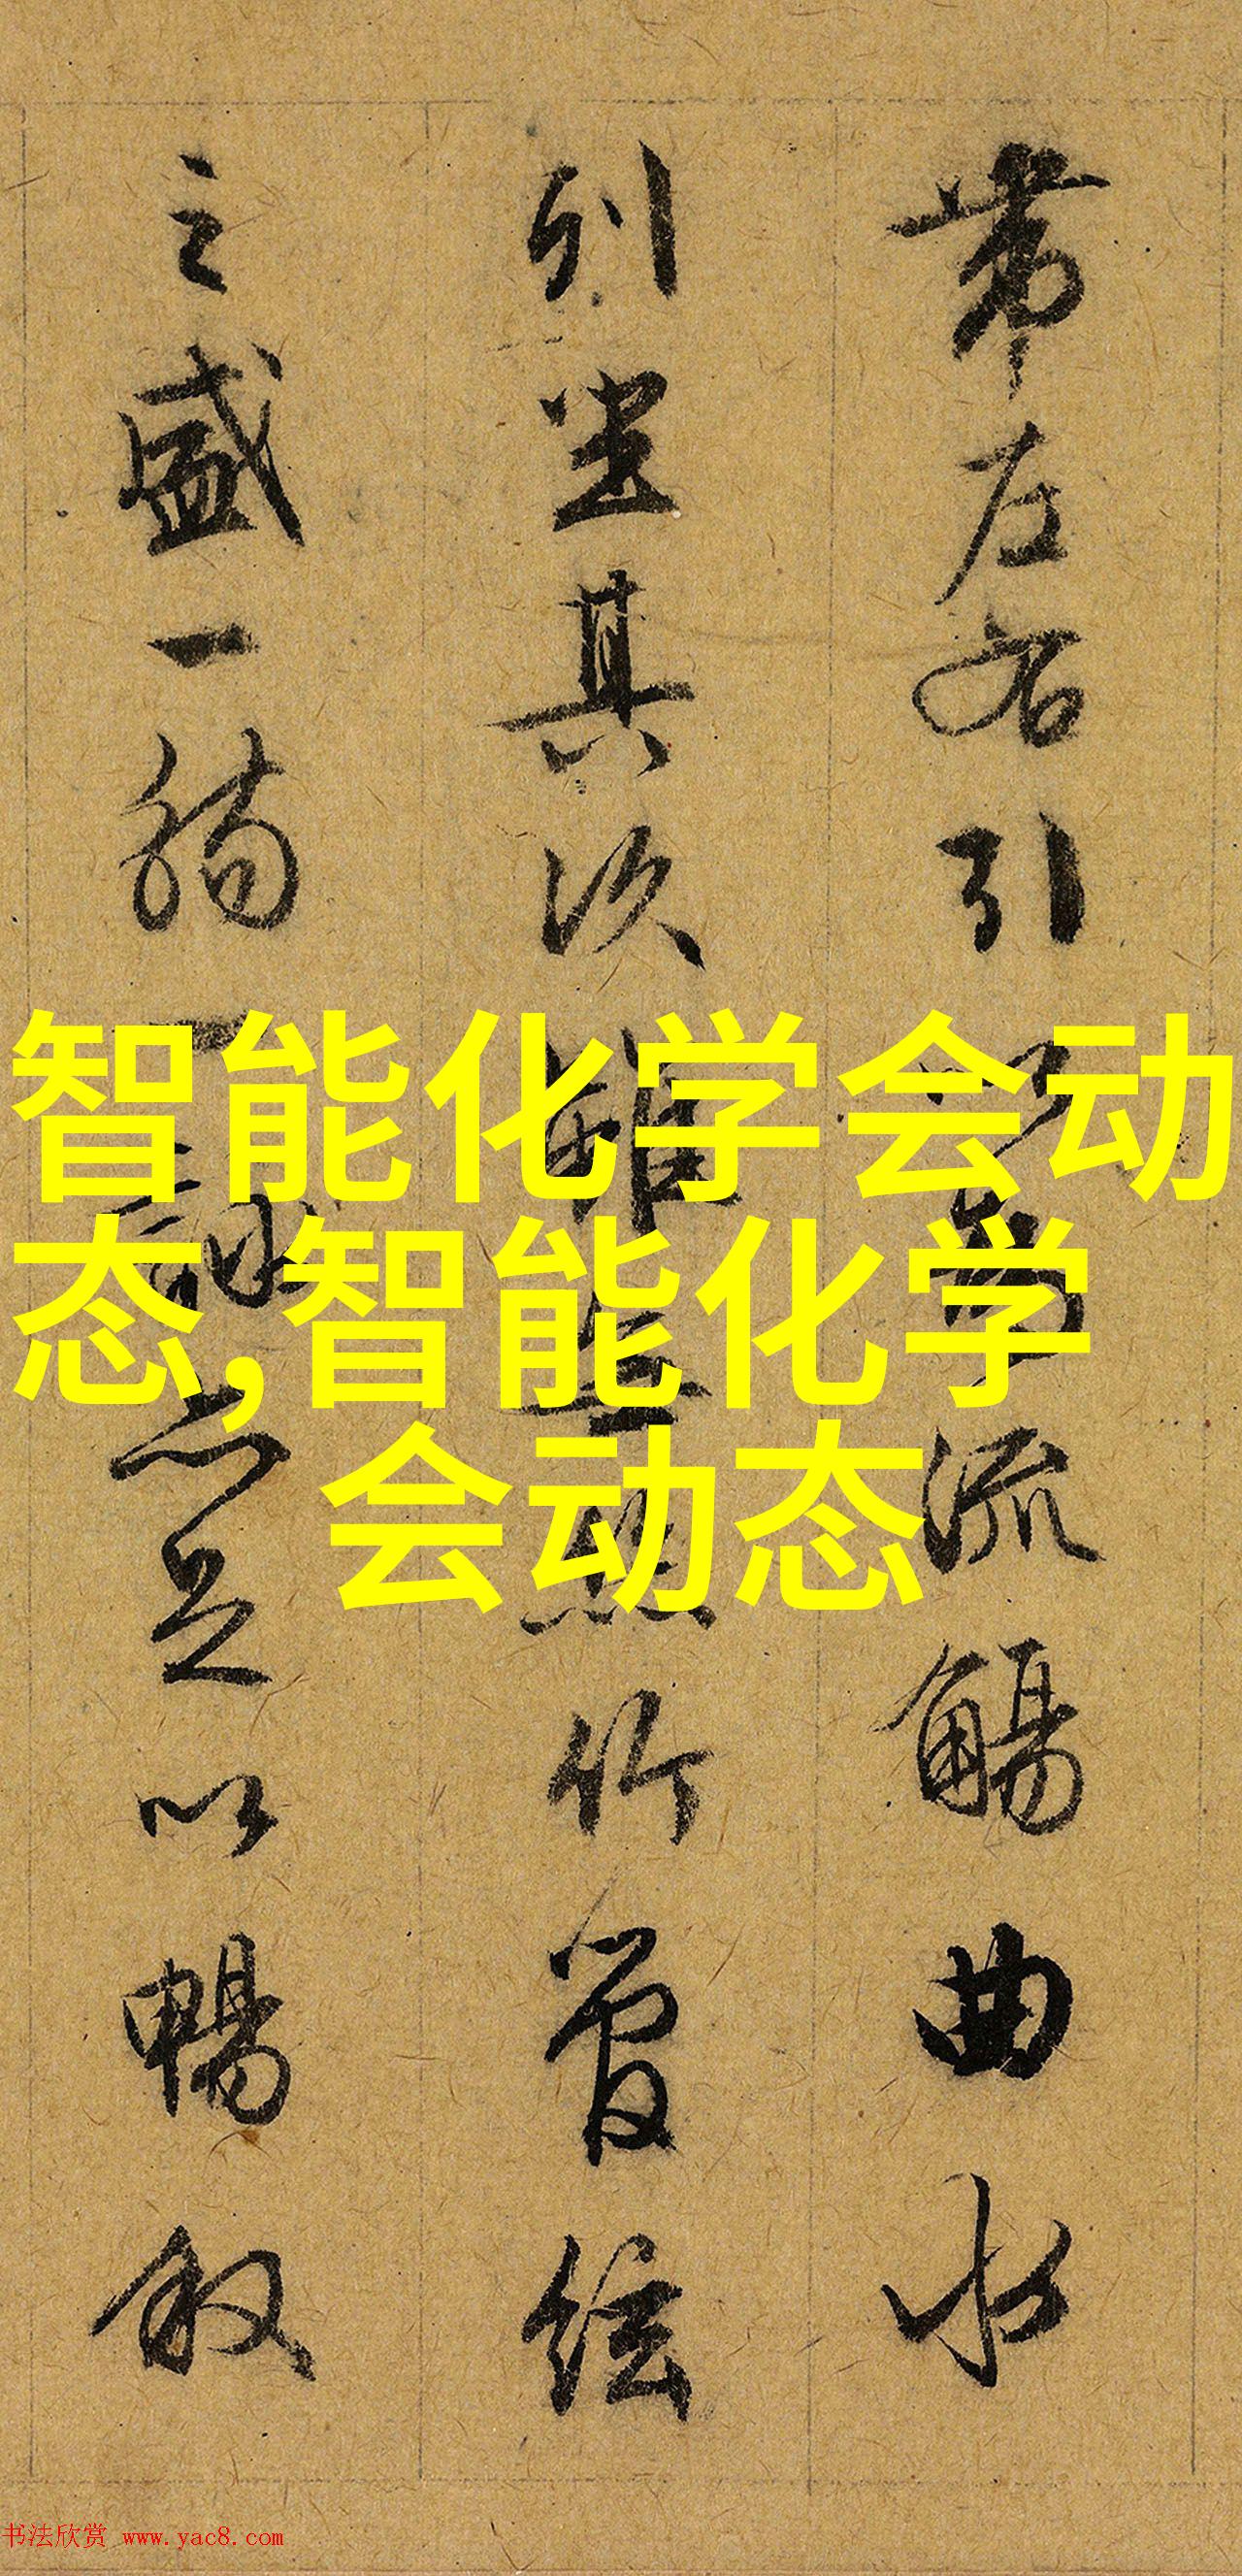 帶左右引以為流觴曲水
列坐其次雖無絲竹管絃
之盛一觴一詠亦足以暢敘
智能化学会动
态,智能化学
会动态
书法欣赏 www.yac8.com